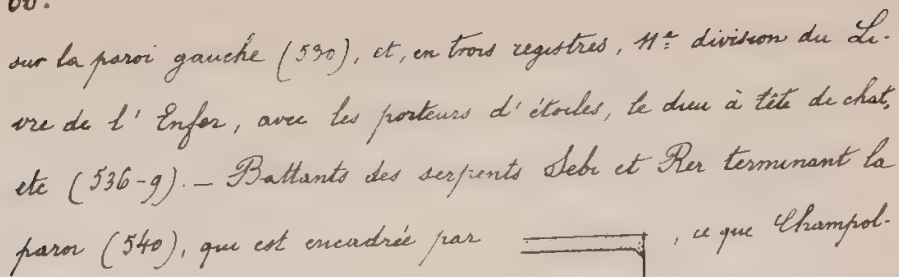 60.
sur la paroi gauche (530), et, en trois registres, 11e division du Li-
vre de l'Enfer, avec les porteurs d'étoiles, le dieu à tête de chat,
etc (536-9). – Battants des serpents Sebi et Rer terminant la
paroi (540), qui est encadrée par , ce que Champol-